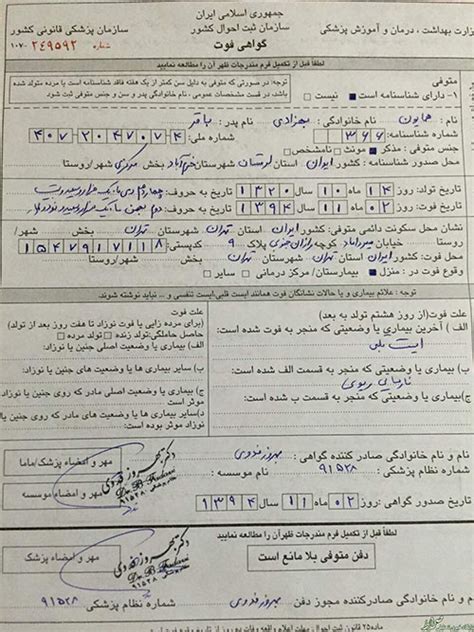 جمهوری اسلامی ایران
وزارت بهداشت ، درمان و آموزش پزشکی
سازمان ثبت احوال کشور
سازمان پزشکی قانونی کشور
گواهی فوت
شماره ۲۴۹۵۹۲ ۱۰۷۰
لطفاً قبل از تکمیل فرم مندرجات ظهر آن را مطالعه نمایید
متوفی
۱- دارای شناسنامه است نیست
توجه: در صورتی که متوفی به دلیل سن کمتر از یک هفته فاقد شناسنامه است یا مرده متولد شده
باشد، در قسمت مشخصات عمومی، نام خانوادگی پدر و سن و جنس متوفی ثبت شود
نام : همایون نام خانوادگی: بهزادی نام پدر: باقر
شماره شناسنامه: ۳۶۶ شماره ملی: ۴۰۷۲۰۴۷۰۷۴
جنس متوفی : مذکر مونث نامشخص
محل صدور شناسنامه : کشور ایران استان لرستان شهرستان خرم‌آباد بخش مرکزی شهر/روستا
تاریخ تولد: روز ۱۴ ماه ۱۰ سال ۱۳۲۰ تاریخ به حروف: چهاردهم دی
تاریخ فوت: روز ۰۲ ماه ۱۱ سال ۱۳۹۴ تاریخ به حروف: دوم بهمن
نشانی محل سکونت دائمی متوفی: کشور ایران استان تهران شهرستان تهران بخش شهر/
روستا خیابان میرداماد کوچه پلاک ۹ کدپستی: ۱۵۴۷۹۱۷۱۱۸
محل فوت : کشور ایران استان تهران شهرستان تهران بخش شهر/روستا
وقوع فوت در : منزل بیمارستان/ مرکز درمانی سایر
توجه : علائم بیماری و یا حالات نشانگان فوت همانند ایست قلبی،ایست تنفسی و ... نباید نوشته شوند.
علت فوت(از روز هشتم تولد به بعد)
الف) آخرین بیماری یا وضعیتی که منجر به فوت شده است:
ایست قلبی
ب) بیماری یا وضعیتی که منجر به قسمت الف شده است:
نارسایی ریوی
ج) بیماری یا وضعیتی که منجر به قسمت ب شده است:
علت فوت
(برای مرده زایی یا فوت نوزاد تا هفت روز بعد از تولد)
حاصل حاملگی: تولد زنده تولد مرده
الف) بیماری یا وضعیت اصلی جنین یا نوزاد:
ب) سایر بیماری ها یا وضعیت های جنین یا نوزاد:
ج) بیماری یا وضعیت اصلی مادر که روی جنین یا
نوزاد موثر بوده است:
د) سایر بیماری ها یا وضعیت های مادر که روی جنین یا
نوزاد موثر بوده است:
نام و نام خانوادگی صادر کننده گواهی: بهروز فدوی
شماره نظام پزشکی: ۹۱۵۲۸ نام موسسه :
تاریخ صدور گواهی: روز ۰۲ ماه ۱۱ سال ۱۳۹۴
مهر و امضاء پزشک/ماما
مهر و امضاء موسسه
لطفاً قبل از تکمیل فرم مندرجات ظهر آن را مطالعه نمایید
دفن متوفی بلا مانع است
مهر و امضاء پزشک
نام و نام خانوادگی صادرکننده مجوز دفن بهروز فدوی شماره نظام پزشکی ۹۱۵۲۸